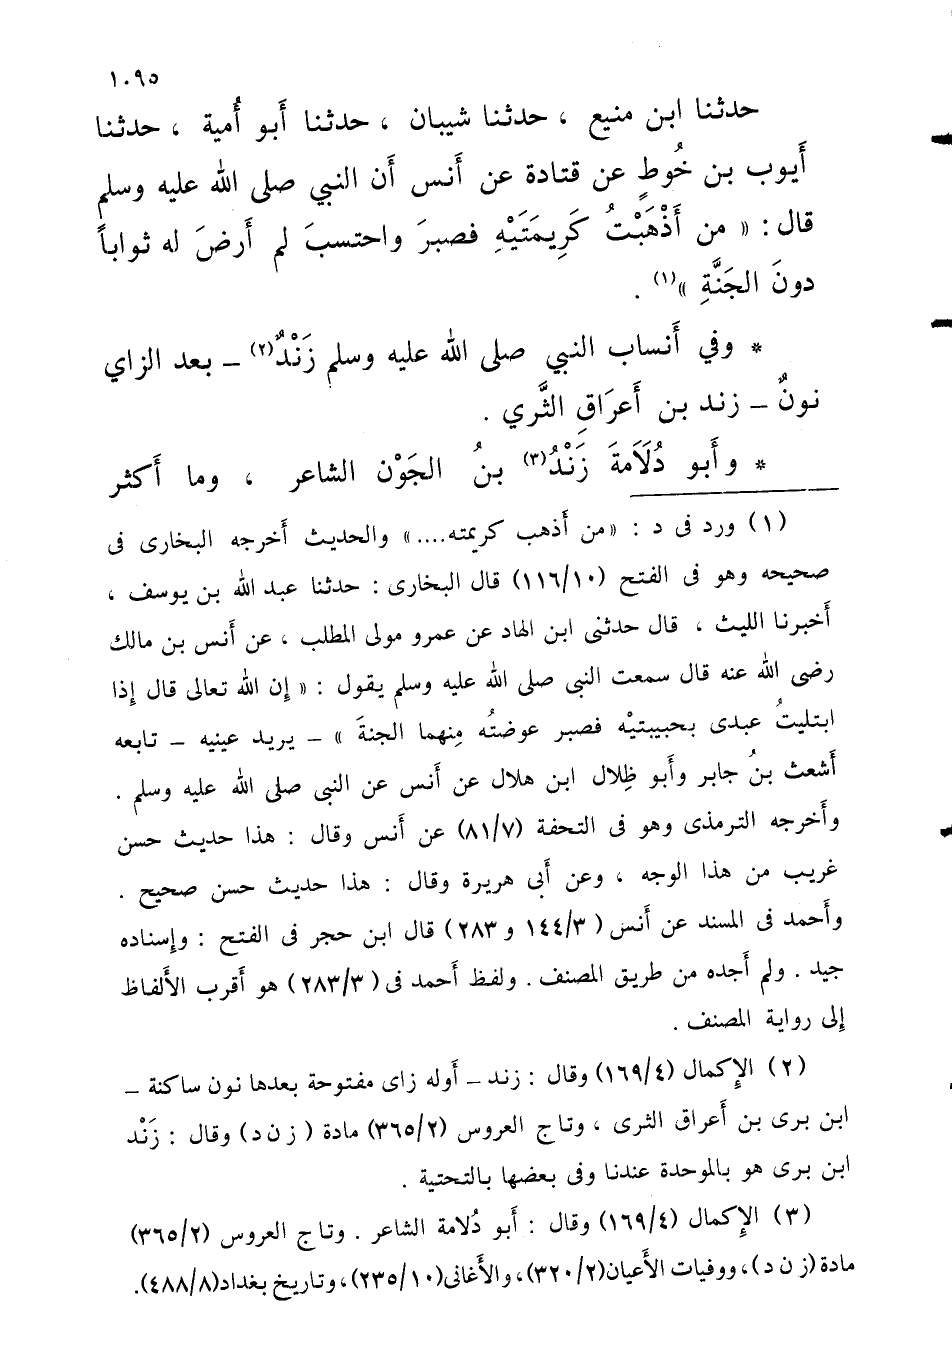 ١٠٩٥
حدثنا ابن منيع ، حدثنا شيبان ، حدثنا أبو أُمية ، حدثنا
أيوب بن خُوطٍ عن قتادة عن أنس أن النبي صلى الله عليه وسلم
قال : « من أَذْهَبْتُ كَرِيمَتَيْهِ فصبرَ واحتسبَ لم أرضَ له ثواباً
دونَ الجَنَّةِ »(١) .
* وفي أنساب النبي صلى الله عليه وسلم زَنْدٌ(٢) ــ بعد الزاي
نونٌ ــ زند بن أَعرَاقِ الثَّري .
* وأبو دُلَامَةَ زَنْدُ(٣) بنُ الجَوْن الشاعر ، وما أكثر
(١) ورد فى د : «من أذهب كريمته....» والحديث أخرجه البخارى فى
صحيحه وهو فى الفتح (١١٦/١٠) قال البخارى : حدثنا عبد الله بن يوسف ،
أخبرنا الليث ، قال حدثنى ابن الهاد عن عمرو مولى المطلب ، عن أنس بن مالك
رضى الله عنه قال سمعت النبى صلى الله عليه وسلم يقول : « إن الله تعالى قال إذا
ابتليتُ عبدى بحبيبتيْه فصبر عوضتُه مِنهما الجنةَ » ــ يريد عينيه ــ تابعه
أشعث بنُ جابر وأبو ظِلال ابن هلال عن أنس عن النبى صلى الله عليه وسلم .
وأخرجه الترمذى وهو فى التحفة (٨١/٧) عن أنس وقال : هذا حديث حسن
غريب من هذا الوجه ، وعن أبى هريرة وقال : هذا حديث حسن صحيح .
وأحمد فى المسند عن أنس (١٤٤/٣ و ٢٨٣) قال ابن حجر فى الفتح : وإسناده
جيد . ولم أجده من طريق المصنف . ولفظ أحمد فى (٢٨٣/٣) هو أقرب الألفاظ
إلى رواية المصنف .
(٢) الإكمال (١٦٩/٤) وقال : زند ــ أوله زاى مفتوحة بعدها نون ساكنة ــ
ابن برى بن أعراق الثرى ، وتاج العروس (٣٦٥/٢) مادة (زن د) وقال : زَنْد
ابن برى هو بالموحدة عندنا وفى بعضها بالتحتية .
(٣) الإكمال (١٦٩/٤) وقال : أبو دُلامة الشاعر . وتاج العروس (٣٦٥/٢)
مادة (زن د)، ووفيات الأعيان(٣٢٠/٢)، والأغانى(٢٣٥/١٠)، وتاريخ بغداد(٤٨٨/٨).